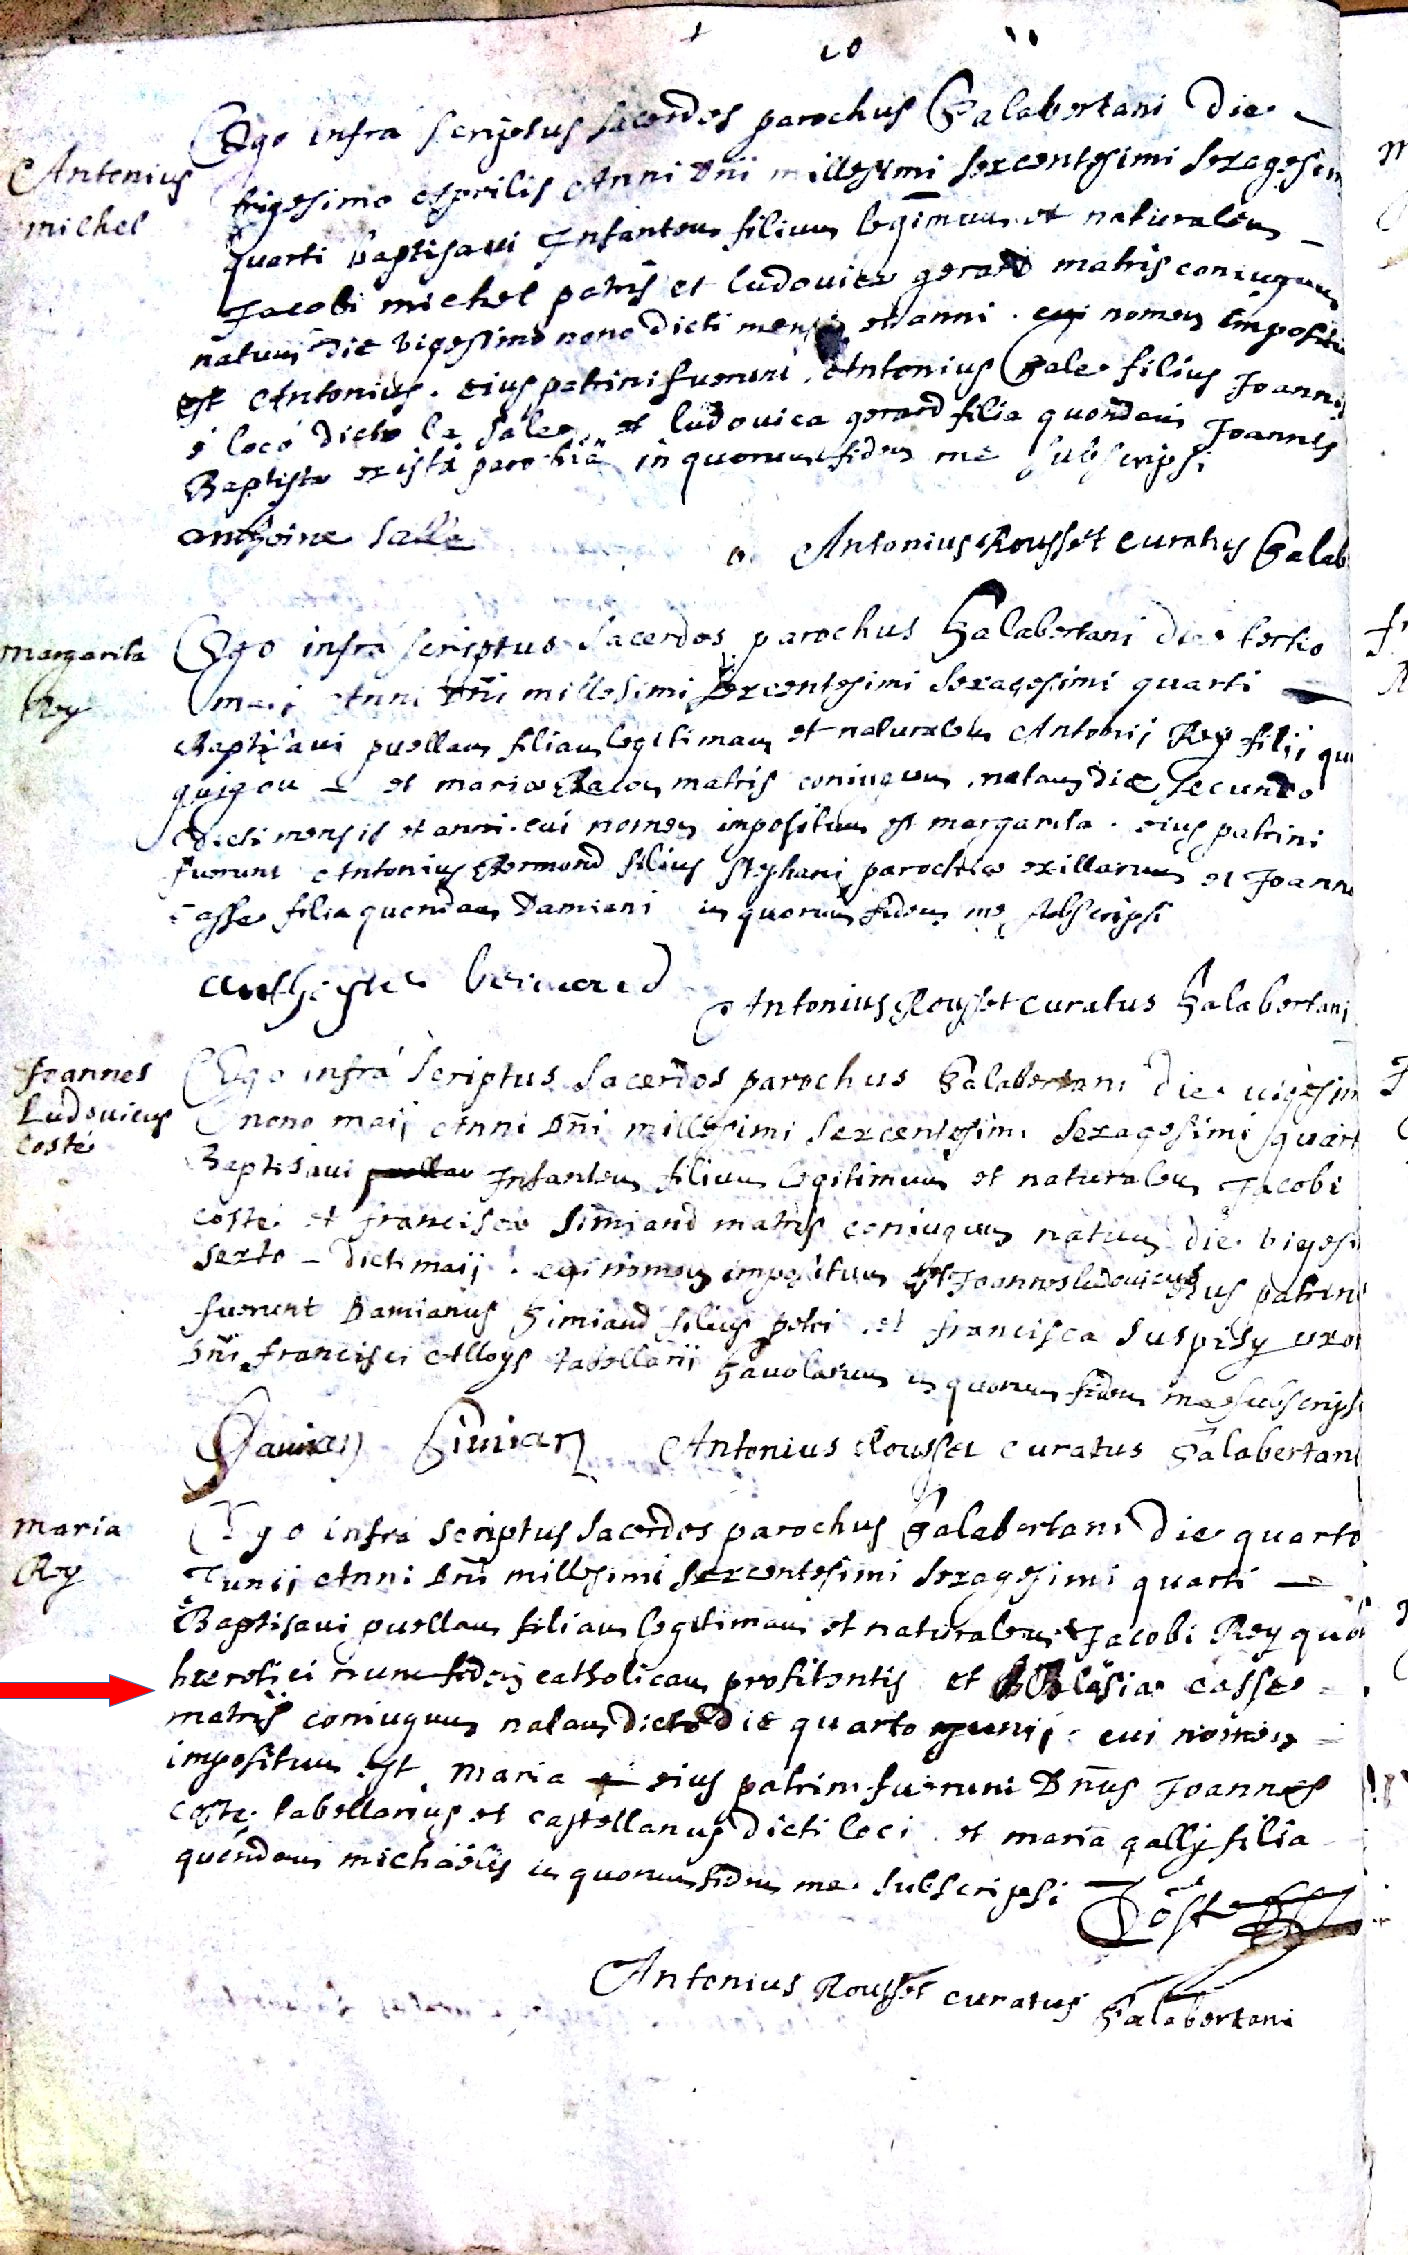 10
Ego infra scriptus sacerdos parochus Salabertani die
Antonius
michel
trigesimo Aprilis Anni Dñi millesimi sexcentesimi sexagesim
quarti Baptisavi Infantem filium legimum et naturalem
Jacobi michel patris et ludovica gerard matris coniugum
natum die vigesimo nono dicti mensis et anni . cui nomen
est Antonius . eius patrini fuerunt Antonius Sale filius Joannis
é locó dicto la Sale et ludovica gerard filia quondam Joannes
Baptista ex ista parochia in quorum fidem me subscripsi
anthoine salle
Antonius Rousset curatus Salab
margarita
Rey
Ego infra scriptus sacerdos parochus Salabertani die tertio
maij Anni Dñi millesimi sexcentesimi sexagesimi quarti
Baptisavi puellam filiam legitimam et naturalem Antonij Rey filij qu
et maria matris coniugum natam die secundo
dicti mensis et anni . cui nomen impositum est margarita . eius patrini
fuerunt Antonius filius stephani parochia exillarum et Joann
casse filia quondam Damiani in quorum fidem me subscripsi
Antonius Rousset curatus Salabertani
Joannes
Ludovicus
coste
Ego infrá scriptus sacerdos parochus Salabertani die vigesim
nono maij Anni Dñi millesimi sexcentesimi sexagesimi quart
Baptisavi puellam Infantem filium legitimum et naturalem Jacobi
coste et francisca simiand matris coniugum natum die vigesi
sexto dicti maij . cui nomen impositum est Joannes ludovicus eius patrini
fuerunt Damianus Simiand filius petri et francisca suspisy uxor
Dñi francisci Alloys tabellarij Savolarum in quorum fidem me subscrips
Damian Simian Antonius Rousset curatus Salabertani
maria
Rey
Ego infrá scriptus sacerdos parochus Salabertani Die quarto
Junij Anni Dñi millesimi sexcentesimi sexagesimi quarti
Baptisavi puellam filiam legitimam et naturalem Jacobi Rey
hæretici nunc fidem catholicam profitentis et Blasia casse
matris coniugum natam dicto die quarto junij : cui nomen
impositum est maria eius patrini fuerunt Dñus Joannes
coste tabellarius et castellanus dicti loci et maria gally filia
quondam michaelis in quorum fidem me subscripsi Coste
Antonius Rousset curatus Salabertani